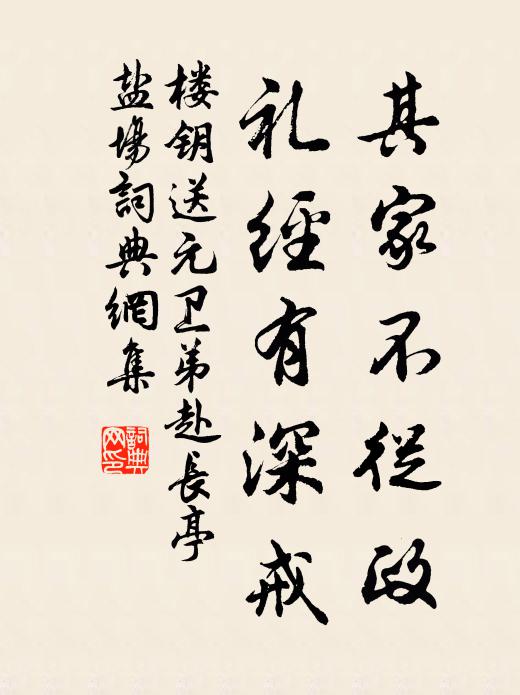 其家不从政
礼经有深戒
楼钥送元卫弟赴长亭
盐场词典網集
詞典网印